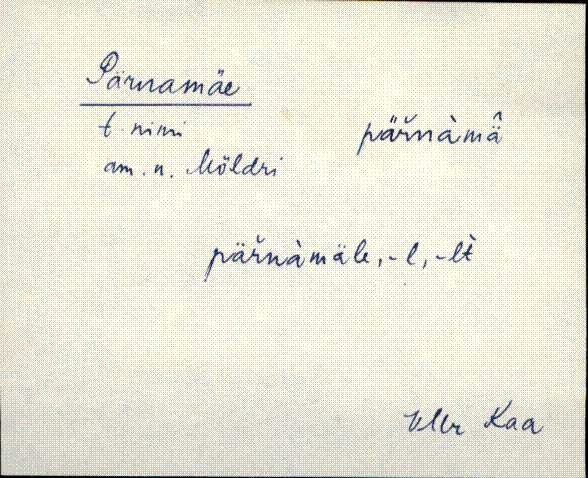 Pärnamäe
t. nimi
pär̆nàmä̂
am. n. Möldri
pär̆nàmäle, -l, -lt̀
Kaa